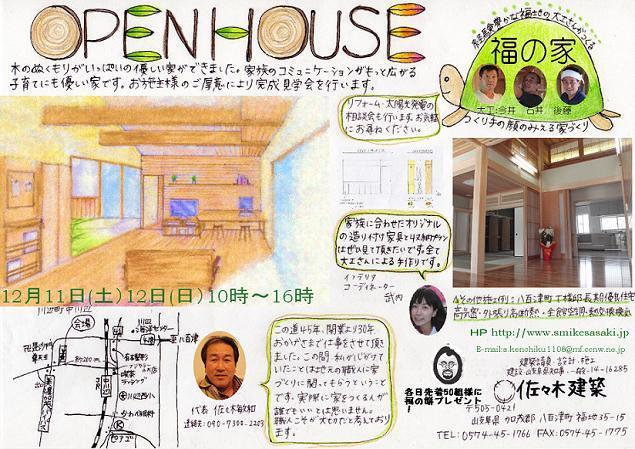 OPEN HOUSE
木のぬくもりがいっぱいの優しい家ができました。家族のコミュニケーションがもっと広がる
子育てにも優しい家です。お施主様のご厚意により完成見学会を行います。
経験豊かな福地の大工さんがつくる
福の家
大工:今井 石井 後藤
つくり手の顔のみえる家づくり
リフォーム・太陽光発電の
相談会も行います。お気軽
にお尋ねください。
家族に合わせたオリジナル
の造り付け家具と収納プラン
はぜひ見て頂きたいです。全て
大工さんによる手作りです。
インテリア
コーディネーター
武内
12月11日(土)12日(日)10時〜16時
その他施工例:八百津町T様邸長期優良住宅
HP http://www.smikesasaki.jp
E-mail:s.kenchiku1108@mf.ccnw.ne.jp
この道45年、開業より30年
おかげさまで仕事をさせて頂
きました。この間、私が心がけて
いたことは地元の職人に家
づくりに関ってもらうということ
です。実際に家をつくる人が
誰でもいいとは思いません。
職人こそが大切だと考えており
ます。
代表 佐々木敏和
連絡先:090-7300-2203
各日先着50組様に
桐の餅プレゼント!
建築請負・設計・施工
佐々木建築
〒505-0421
岐阜県加茂郡八百津町福地35-15
TEL:0574-45-1766 FAX:0574-45-1775
会場
川辺町中川辺
至八百津
中川辺
ピアゴ